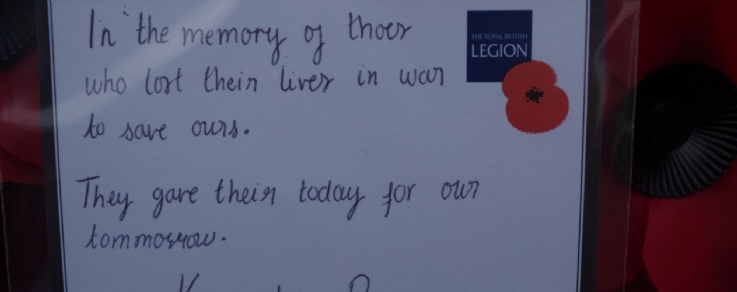 In the memory of thoes
who lost their lives in war
to save ours.
They gave their today for our
tommorrow.
THE ROYAL BRITISH
LEGION